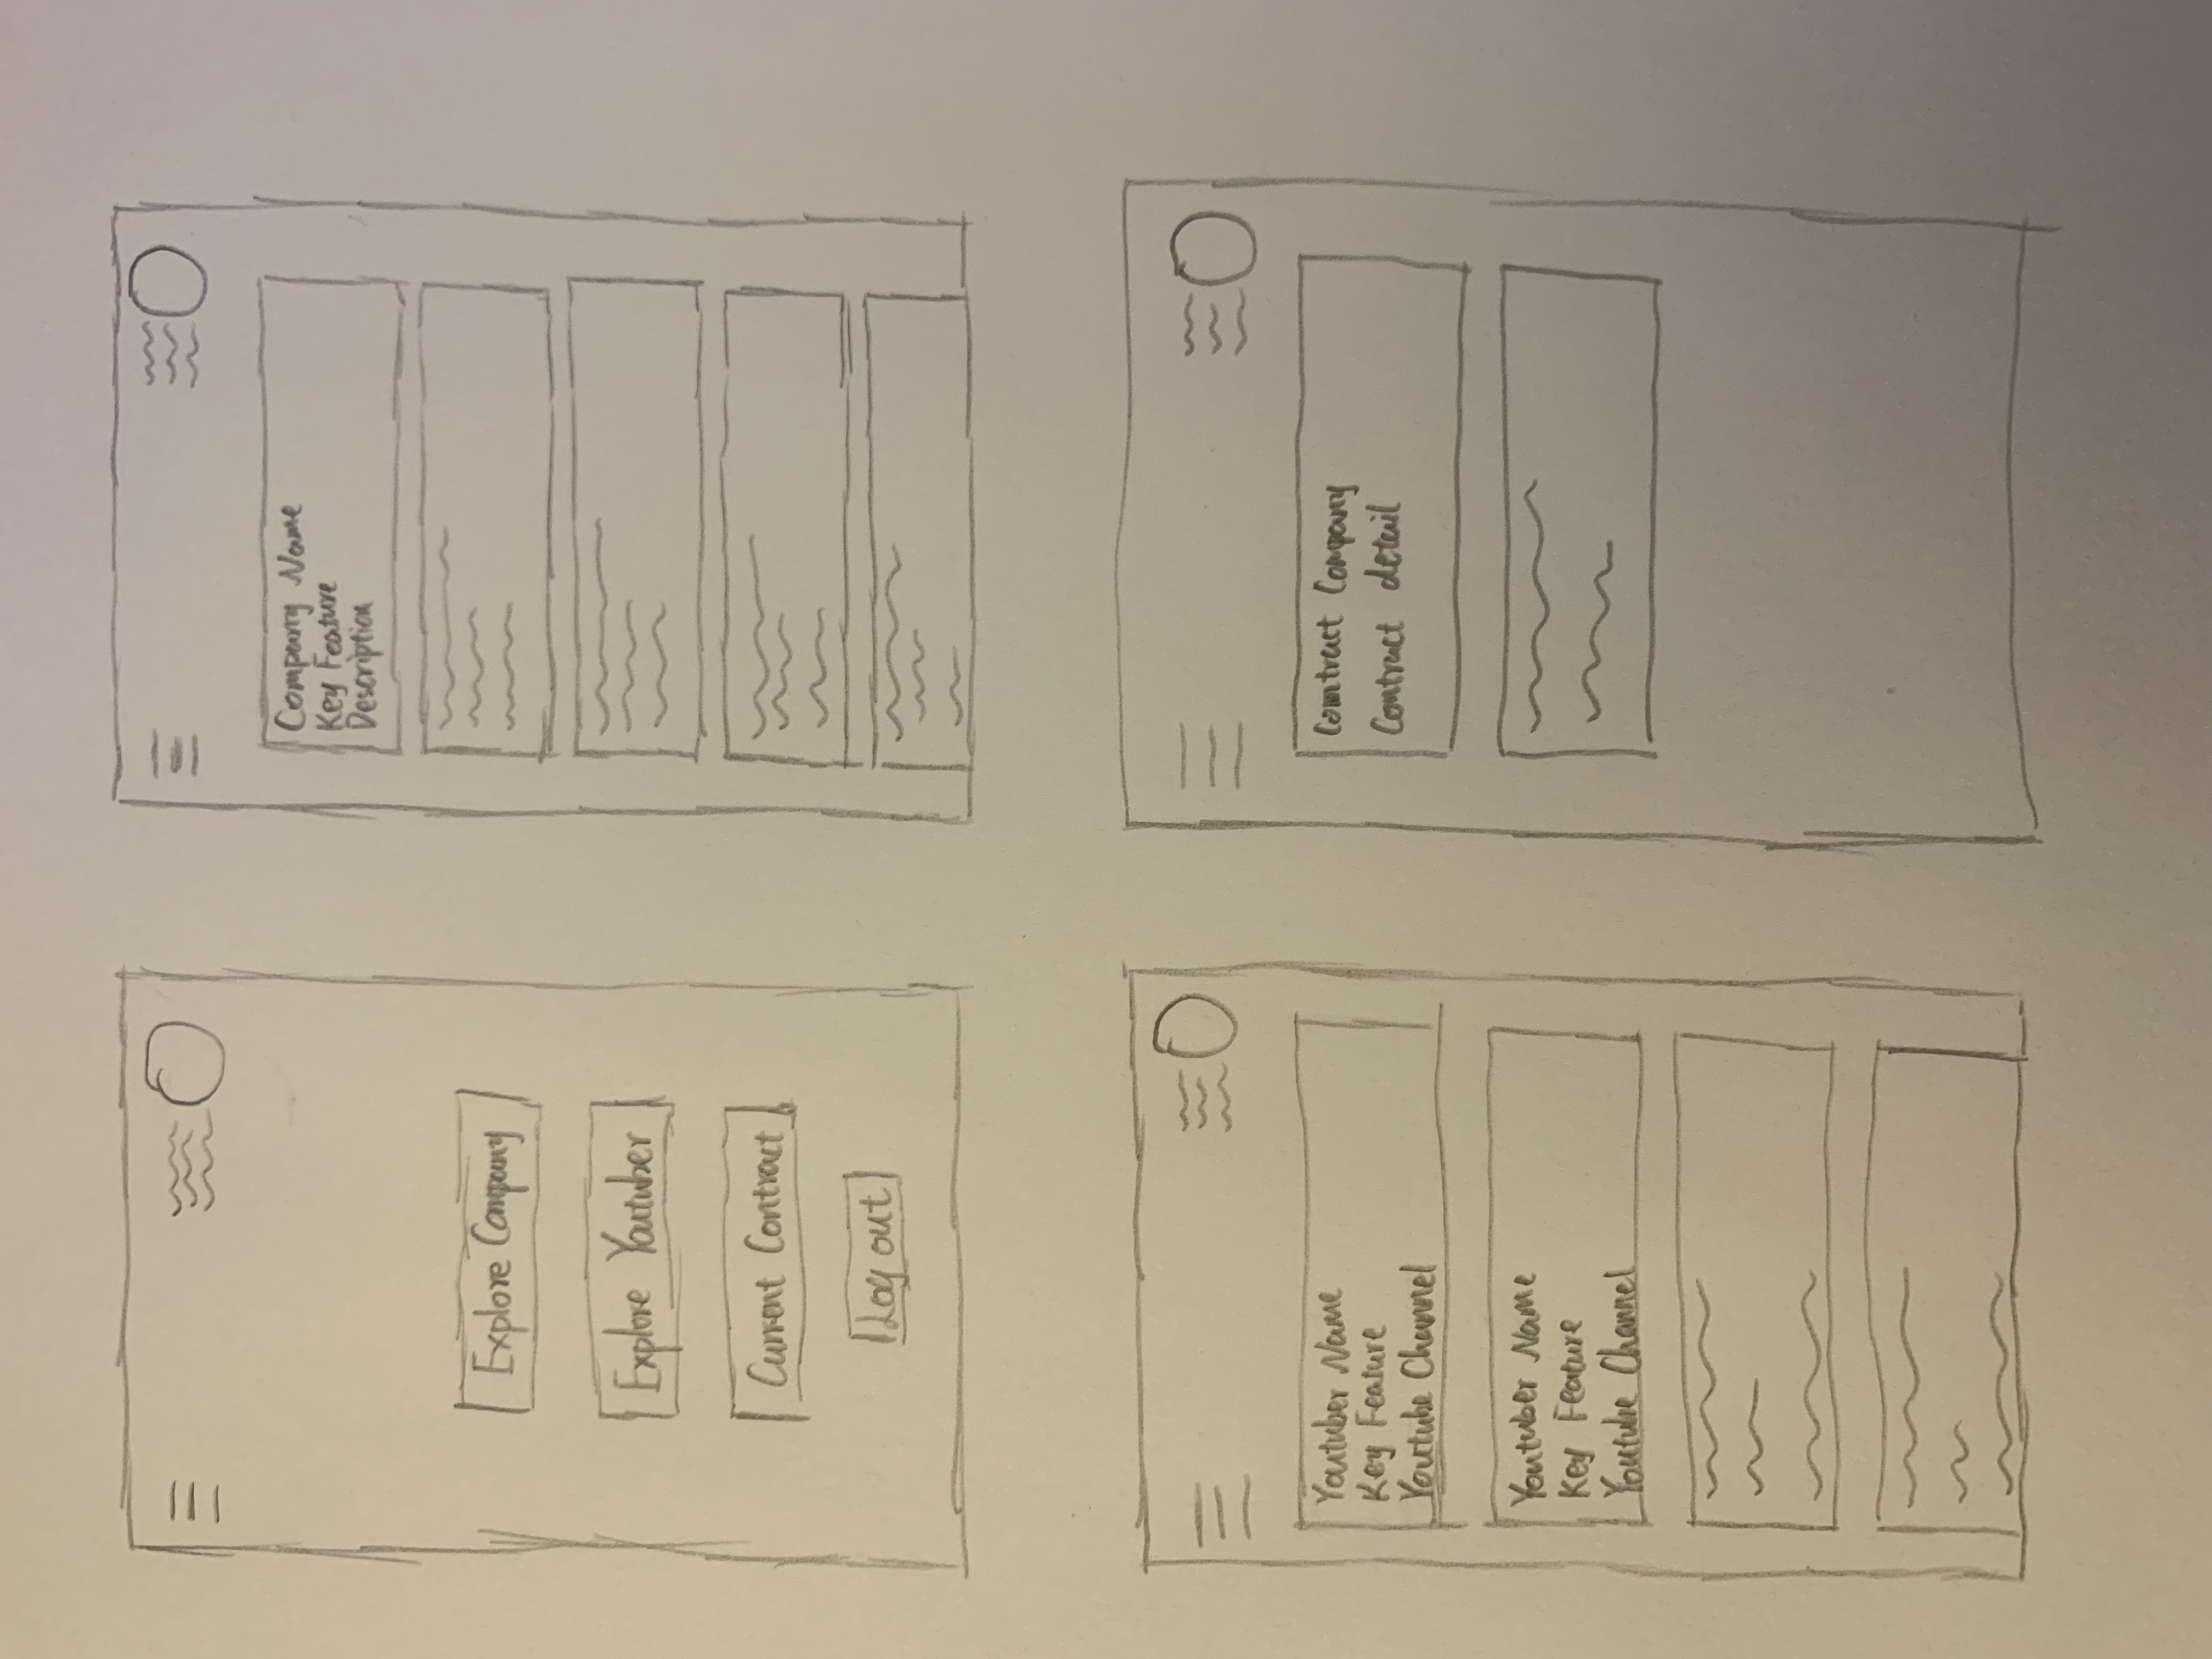 Explore Company
Explore Youtuber
Current Contract
Log out
Company Name
Key Feature
Description
Youtuber Name
Key Feature
Youtube Channel
Youtuber Name
Key Feature
Youtube Channel
Comtract Company
Contract detail